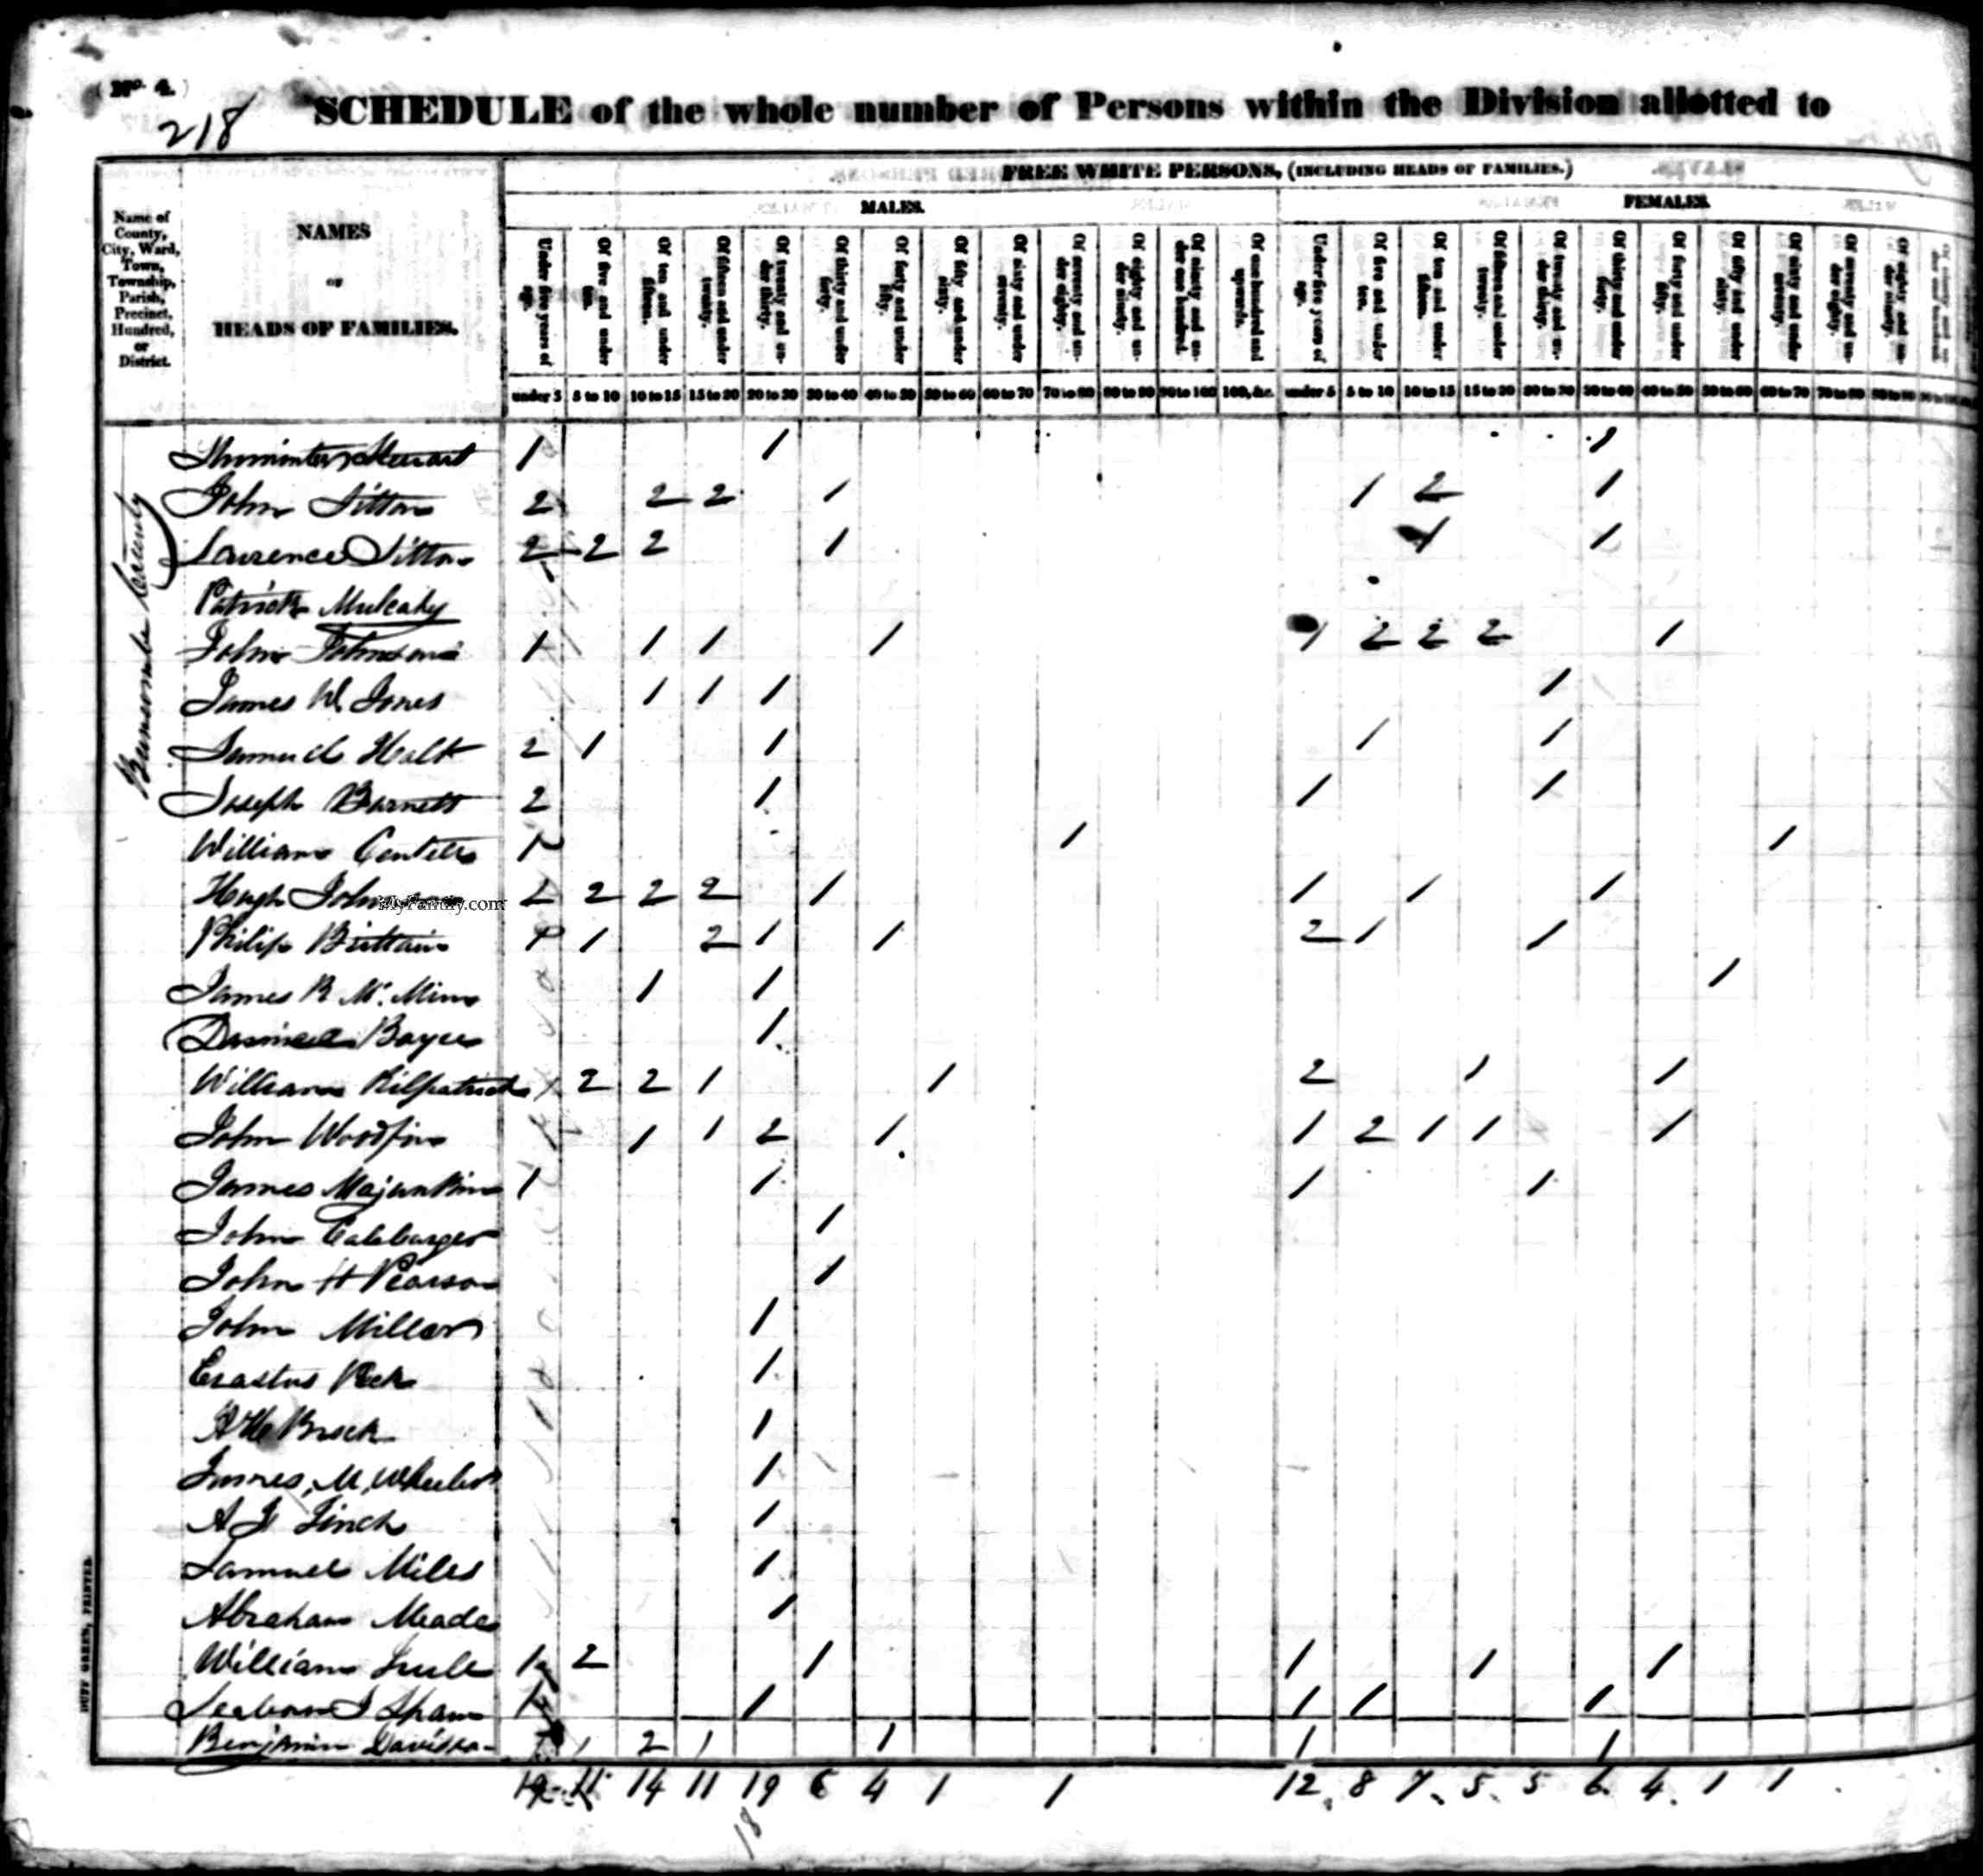 No. 4.
218
SCHEDULE of the whole number of Persons within the Division allotted to
FREE WHITE PERSONS, (INCLUDING HEADS OF FAMILIES.)
MALES. FEMALES.
Name of County, City, Ward, Town, Township, Parish, Precinct, Hundred, or District.
NAMES
OF
HEADS OF FAMILIES.
Under five years of age. Of five and under ten. Of ten and under fifteen. Of fifteen and under twenty. Of twenty and under thirty. Of thirty and under forty. Of forty and under fifty. Of fifty and under sixty. Of sixty and under seventy. Of seventy and under eighty. Of eighty and under ninety. Of ninety and under one hundred. Of one hundred and upwards. Under five years of age. Of five and under ten. Of ten and under fifteen. Of fifteen and under twenty. Of twenty and under thirty. Of thirty and under forty. Of forty and under fifty. Of fifty and under sixty. Of sixty and under seventy. Of seventy and under eighty. Of eighty and under ninety.
under 5 5 to 10 10 to 15 15 to 20 20 to 30 30 to 40 40 to 50 50 to 60 60 to 70 70 to 80 80 to 90 90 to 100 100, &c. under 5 5 to 10 10 to 15 15 to 20 20 to 30 30 to 40 40 to 50 50 to 60 60 to 70 70 to 80 80 to 90
Buncombe County
Stewart 1 1 1
John Sitton 2 2 2 1 1 2 1
Lawrence Sitton 2 2 2 1 1 1
Patrick Mulcahy
John Johnson 1 1 1 1 1 2 2 2 1
James W Jones 1 1 1 1
Samuel Holt 2 1 1 1 1
Joseph Barnett 2 1 1 1
William 1 1 1
Hugh 2 2 2 2 1 1 1 1
MyFamily.com
Philip Brittain 1 2 1 1 2 1 1
James R McMinn 1 1 1
Boyce 1
William Kilpatrick 1 2 2 1 1 2 1 1
John Woodfin 1 1 2 1 1 2 1 1 1
James Majunkin 1 1 1 1
John 1
John H Pearson 1
John Miller 1
Erastus Peck 1
Brock 1
James M Wheeler 1
A J Finch 1
Samuel Miles 1
Abraham Meade 1
William 1 2 1 1 1 1
1 1 1 1 1
Benjamin Davidson 1 2 1 1 1 1
14 11 19 6 4 1 1 12 8 7 5 5 6 4 1 1
18
DUFF GREEN, PRINTER.